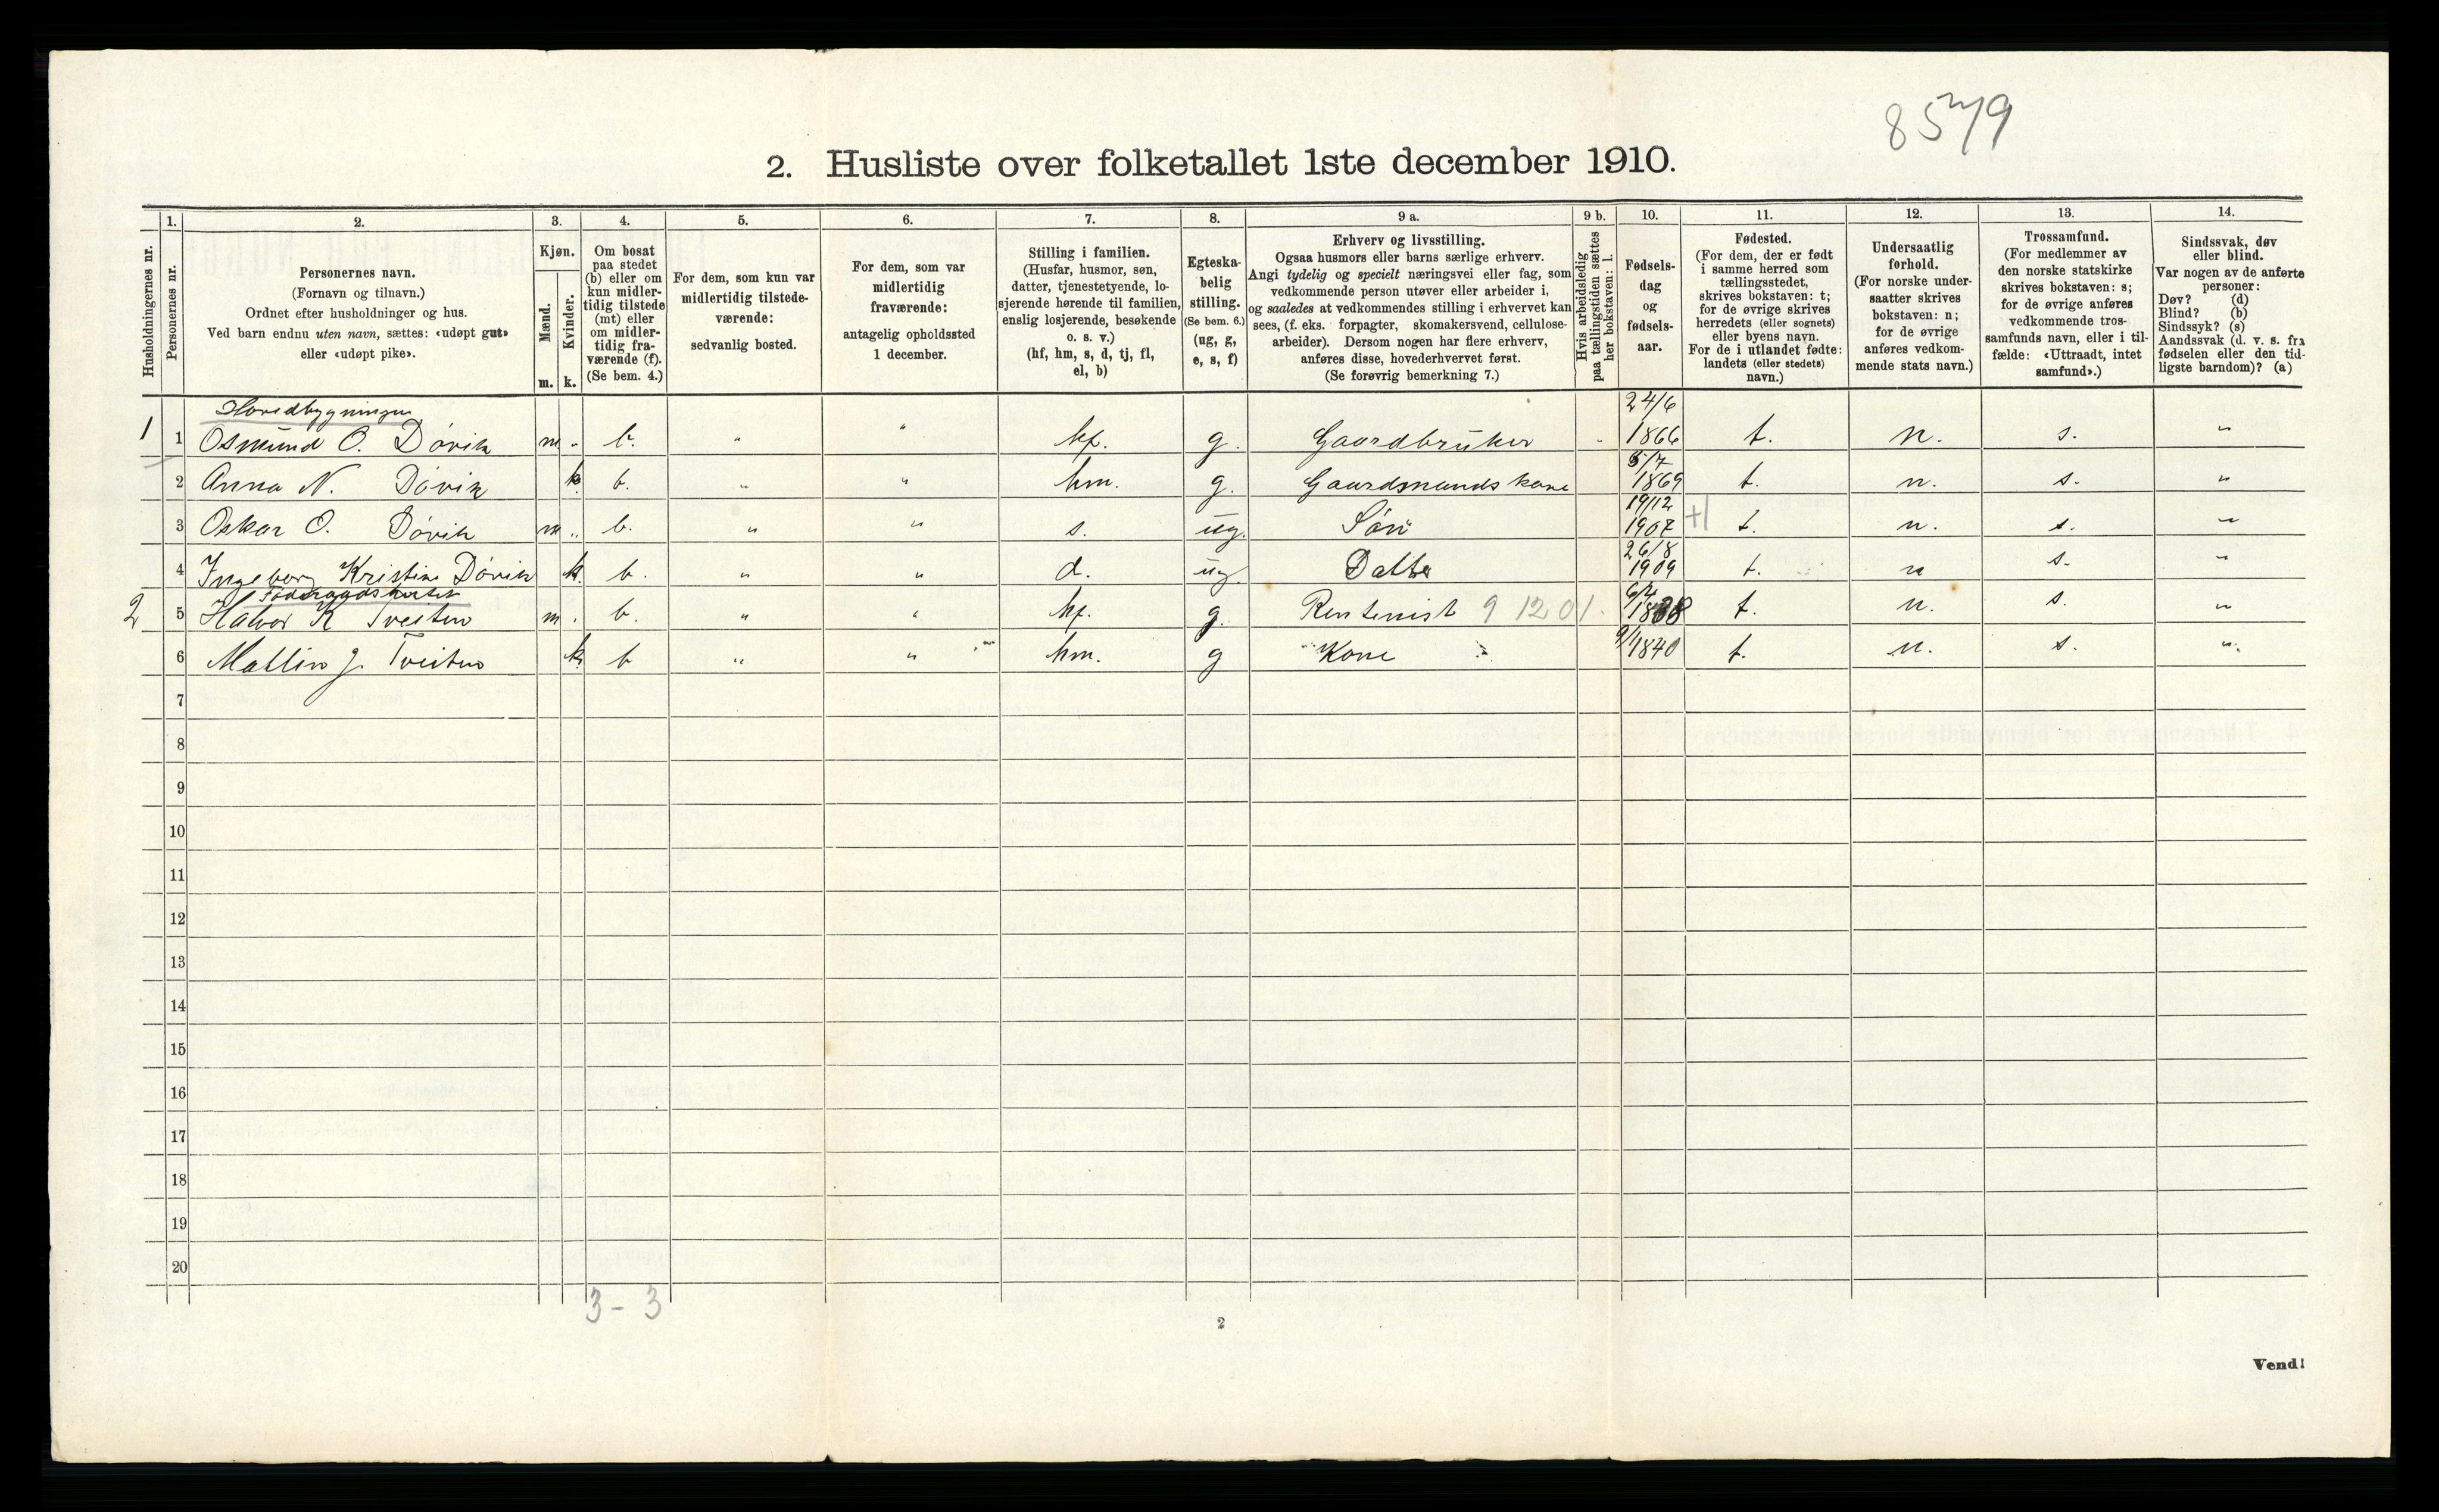 8579
2. Husliste over folketallet 1ste december 1910.
1. 2. 3. 4. 5. 6. 7. 8. 9 a. 9 b. 10. 11. 12. 13. 14.
Husholdningernes nr.
Personernes nr.
Personernes navn.
(Fornavn og tilnavn.)
Ordnet efter husholdninger og hus.
Ved barn endnu uten navn, sættes: «udøpt gut»
eller «udøpt pike».
Kjøn.
Mænd.
Kvinder.
m. k.
Om bosat
paa stedet
(b) eller om
kun midler-
tidig tilstede
(mt) eller
om midler-
tidig fra-
værende (f).
(Se bem. 4.)
For dem, som kun var
midlertidig tilstede-
værende:
sedvanlig bosted.
For dem, som var
midlertidig
fraværende:
antagelig opholdssted
1 december.
Stilling i familien.
(Husfar, husmor, søn,
datter, tjenestetyende, lo-
sjerende hørende til familien,
enslig losjerende, besøkende
o. s. v.)
(hf, hm, s, d, tj, fl,
el, b)
Egteska-
belig
stilling.
(Se bem. 6.)
(ug, g,
e, s, f)
Erhverv og livsstilling.
Ogsaa husmors eller barns særlige erhverv.
Angi tydelig og specielt næringsvei eller fag, som
vedkommende person utøver eller arbeider i,
og saaledes at vedkommendes stilling i erhvervet kan
sees, (f. eks. forpagter, skomakersvend, cellulose-
arbeider). Dersom nogen har flere erhverv,
anføres disse, hovederhvervet først.
(Se forøvrig bemerkning 7.)
Hvis arbeidsledig
paa tællingstiden sættes
her bokstaven: l.
Fødsels-
dag
og
fødsels-
aar.
Fødested.
(For dem, der er født
i samme herred som
tællingsstedet,
skrives bokstaven: t;
for de øvrige skrives
herredets (eller sognets)
eller byens navn.
For de i utlandet fødte:
landets (eller stedets)
navn.)
Undersaatlig
forhold.
(For norske under-
saatter skrives
bokstaven: n;
for de øvrige
anføres vedkom-
mende stats navn.)
Trossamfund.
(For medlemmer av
den norske statskirke
skrives bokstaven: s;
for de øvrige anføres
vedkommende tros-
samfunds navn, eller i til-
fælde: «Uttraadt, intet
samfund».)
Sindssvak, døv
eller blind.
Var nogen av de anførte
personer:
Døv? (d)
Blind? (b)
Sindssyk? (s)
Aandssvak (d. v. s. fra
fødselen eller den tid-
ligste barndom)? (a)
Hovedbygningen 24/6
1 1 Osmund O. Dövik m „ b. „ „ hf. g. Gaardbruker „ 1866 t. n. s. „
5/7
2 Anna N. Dövik k b. „ „ hm. g. Gaardsmandskone 1869 t. n. s. „
19/12
3 Oskar O. Dövik m „ b. „ „ s. ug. Sön 1907 t. n. s. „
26/8
4 Ingeborg Kristine Dövik k b. „ „ d. ug Datter 1909 t. n s. „
2 5 Halvor K Tveiten m . b. „ „ hf. g. Rentenist 9 12 01. 1838 t. n. s. „
6 Mallin J. Tveiten k b „ „ hm. g Kone 9/1 1840 t. n. s. „
7
8
9
10
11
12
13
14
15
16
17
18
19
20
3 - 3
2
Vend!